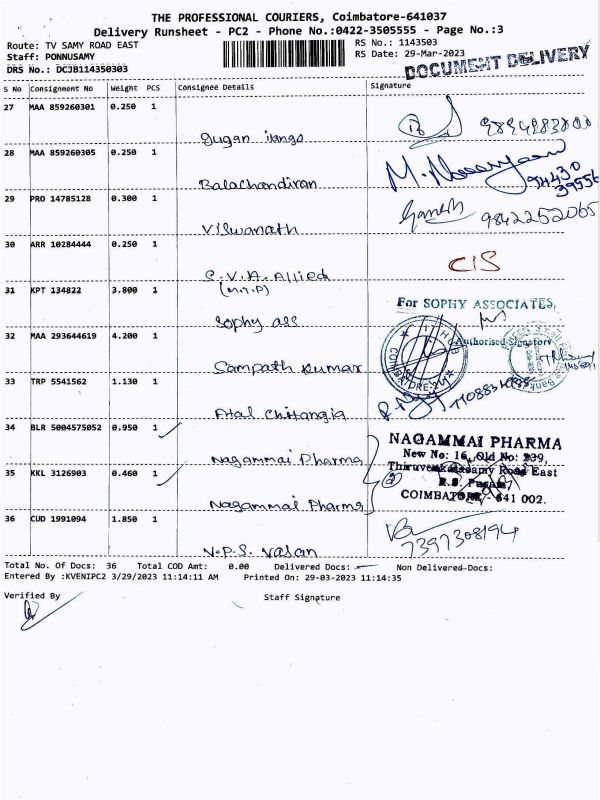 THE PROFESSIONAL COURIERS, Coimbatore-641037
Delivery Runsheet - PC2 - Phone No.:0422-3505555 - Page No.:3
Route: TV SAMY ROAD EAST
Staff: PONNUSAMY
DRS No.: DCJB114350303
RS No.: 1143503
RS Date: 29-Mar-2023
DOCUMENT DELIVERY
S No Consignment No Weight PCS Consignee Details Signature
27 MAA 859260301 0.250 1
Gugan ilango
28 MAA 859260305 0.250 1
Balachandiran M.
94430
39556
29 PRO 14785128 0.300 1
Viswanath Ganesh 9842252065
30 ARR 10284444 0.250 1
S.V.A. Allied CIS
(M.T.P)
31 KPT 134822 3.800 1
Sophy ass
For SOPHY ASSOCIATES,
Authorised Signatory
32 MAA 293644619 4.200 1
Sampath Kumar
33 TRP 5541562 1.130 1
Atal Chitangia
34 BLR 5004575052 0.950 1
Nagammai Pharma
35 KKL 3126903 0.460 1
Nagammai Pharma
NAGAMMAI PHARMA
New No: 16, Old No: 239,
Thiruvenkatasamy Road East
R.S. Puram
COIMBATORE - 641 002.
36 CUD 1991094 1.850 1
N.P.S. Vasan
7397308194
Total No. Of Docs: 36 Total COD Amt: 0.00 Delivered Docs: Non Delivered-Docs:
Entered By :KVENIPC2 3/29/2023 11:14:11 AM Printed On: 29-03-2023 11:14:35
Verified By Staff Signature